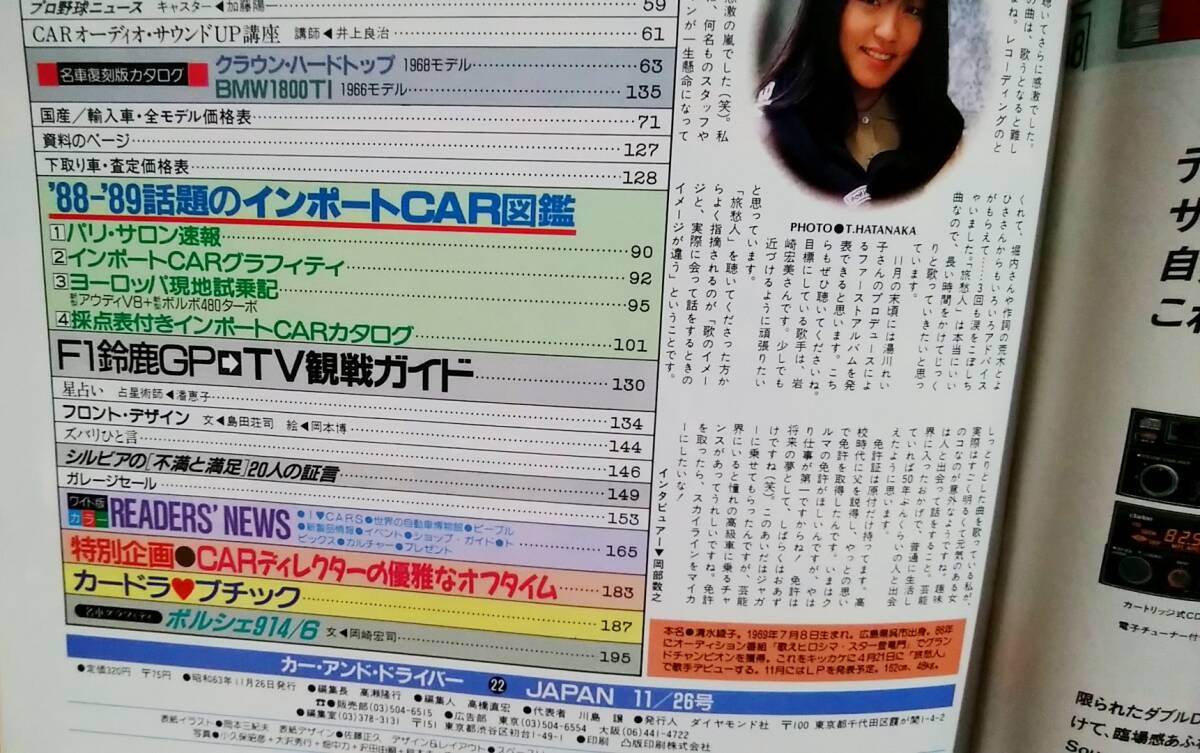 プロ野球ニュース キャスター◀加藤陽一 59
CARオーディオ・サウンドUP講座 講師◀井上良治 61
名車復刻版カタログ
クラウン・ハードトップ 1968モデル 63
BMW1800TI 1966モデル 135
国産/輸入車・全モデル価格表 71
資料のページ 127
下取り車・査定価格表 128
'88-'89話題のインポートCAR図鑑
1 パリ・サロン速報 90
2 インポートCARグラフィティ 92
3 ヨーロッパ現地試乗記 95
アウディV8+ボルボ480ターボ
4 採点表付きインポートCARカタログ 101
F1鈴鹿GP TV観戦ガイド 130
星占い 占星術師◀潘恵子 134
フロント・デザイン 文◀島田荘司 絵◀岡本博 144
ズバリひと言 146
シルビアの[不満と満足]20人の証言 149
ガレージセール 153
ワイド版
カラー
READERS' NEWS 165
●I♥CARS●世界の自動車博物館●ピープル
●新製品情報●イベント●ショップ・ガイド●ト
ピックス●カルチャー●プレゼント
特別企画●CARディレクターの優雅なオフタイム 183
カードラ♥ブチック 187
名車グラフィティ
ポルシェ914/6 文◀岡崎宏司 195
カー・アンド・ドライバー 22 JAPAN 11/26号
●定価320円 〒75円 ●昭和63年11月26日発行 ●編集長 高瀬隆行 ●編集人 高橋直宏 ●代表者 川島 譲 ●発行人 ダイヤモンド社 〒100 東京都千代田区霞が関1-4-2
☎●販売部(03)504-6515 ●広告部 東京(03)504-6554 大阪(06)441-4722
●編集室(03)378-313 〒151 東京都渋谷区初台1-49-1 ●印刷 凸版印刷株式会社
表紙イラスト●岡本三紀夫 表紙デザイン●佐藤正久 デザイン&レイアウト●スペース
聴いてさらに感激でした。
の曲は、歌うとなると難し
ね。レコーディングのと
感激の嵐でした(笑)。私
に、何名ものスタッフや
ンが一生懸命になって
PHOTO●T.HATANAKA
くれて、堀内さんや作詞の荒木とよ
ひささんからもいろいろアドバイス
がもらえて……3回も涙をこぼしち
ゃいました。「旅愁人」は本当にいい
曲なので、長い時間をかけてじっく
りと歌っていきたいと思っ
ています。
11月の末頃には湯川れい
子さんのプロデュースによ
るファーストアルバムを発
表できると思います。こち
らもぜひ聴いてくださいね。
目標にしている歌手は、岩
崎宏美さんです。少しでも
近づけるように頑張りたい
と思っています。
「旅愁人」を聴いてくださった方か
らよく指摘されるのが「歌のイメー
ジと、実際に会って話をするときの
イメージが違う」ということです。
しっとりとした曲を歌っている私が、
実際はすごく明るくて元気のある女
のコなのが意外なようですね。趣味
は人と出会って話をすること。芸能
界に入ったおかげで、普通に生活し
ていれば50年ぶんくらいの人と出会
えたように思います。
免許証は原付だけ持ってます。高
校時代に父を説得し、やっとの思い
で免許を取得したんです。いまはク
ルマの免許がほしいんですが、やは
り仕事が第一ですからね!免許は
将来の夢として、しばらくはおあず
けですね(笑)。このあいだはジャガ
ーに乗せてもらったんですが、芸能
界にいると憧れの高級車に乗るチャ
ンスがあってうれしいですね。免許
を取ったら、スカイラインをマイカ
ーにしたいな!
インタビュアー▼岡部数之
本名●清水綾子。1969年7月8日生まれ。広島県呉市出身。86年
にオーディション番組「歌えヒロシマ・スター登竜門」でグラン
ドチャンピオンを獲得。これをキッカケに4月21日に「旅愁人」
で歌手デビューする。11月にはLPを発表予定。162cm、48kg。
カートリッジ式CD
電子チューナー付
限られたダブルD
けて、臨場感あふ